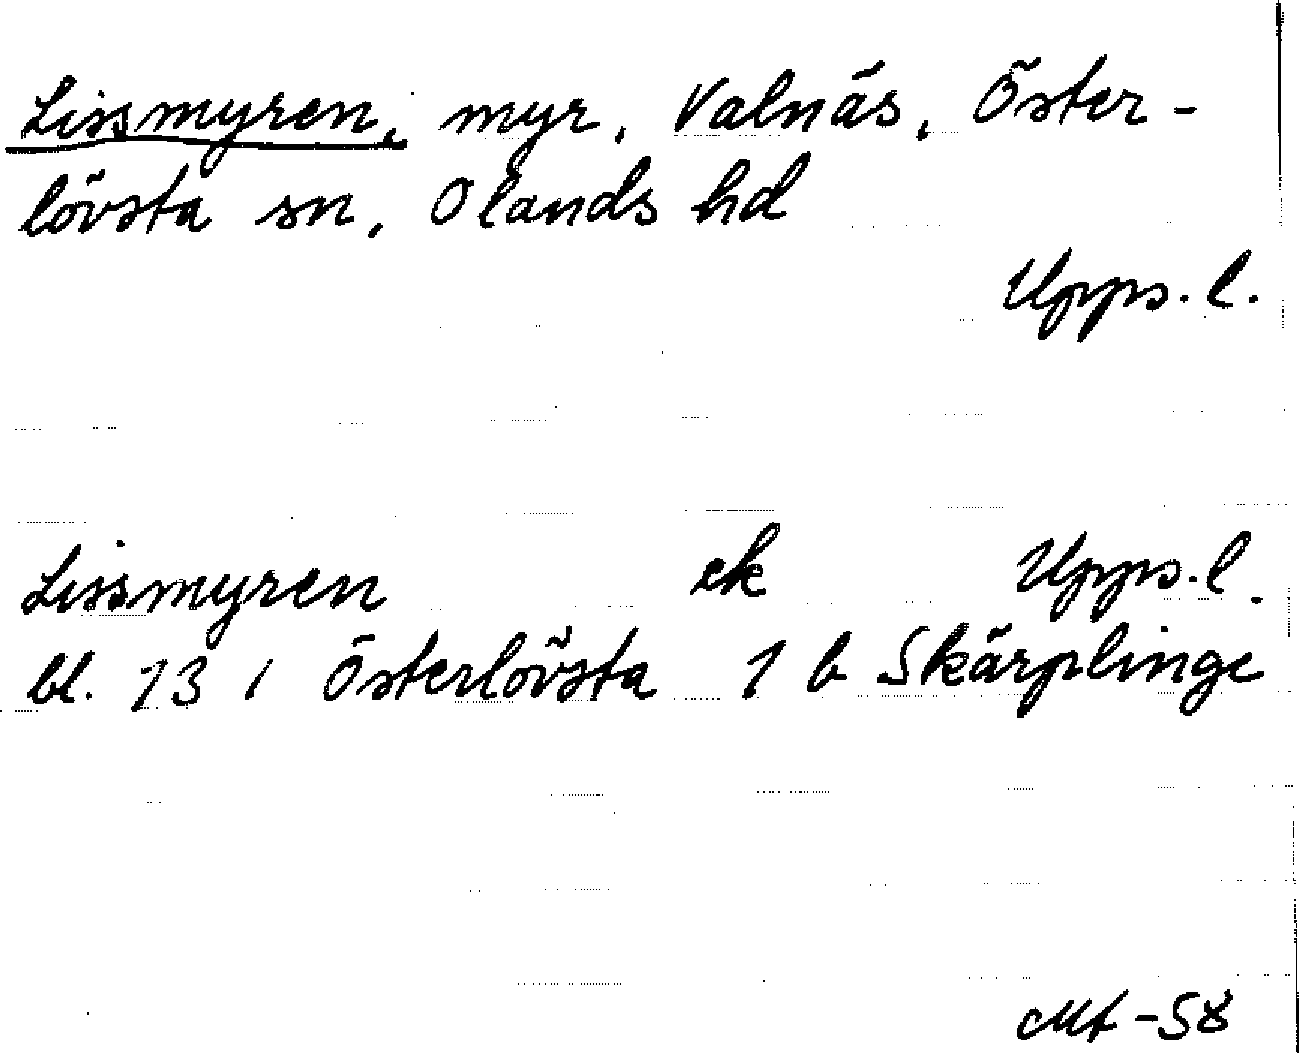 Lissmyren, myr, Valnäs, Öster-
lövsta sn, Olands hd
Upps. l.
Lissmyren ek Upps. l.
bl. 73 i Österlövsta 1 b Skärplinge
Mt -58